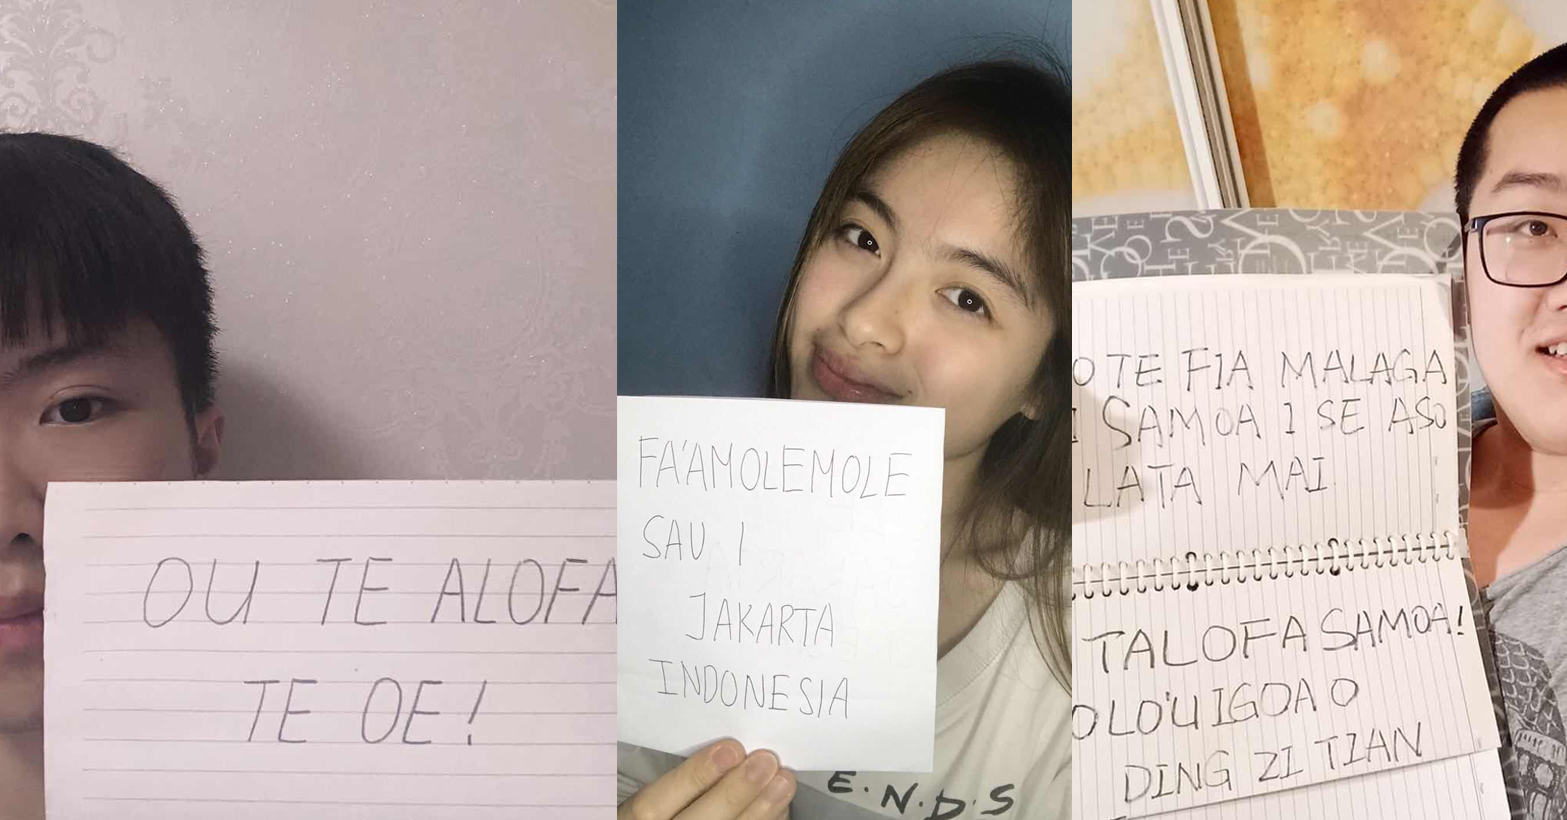 OU TE ALOFA
TE OE!
FA'AMOLEMOLE
SAU I
JAKARTA
INDONESIA
E.N.D.S
O TE FIA MALAGA
I SAMOA I SE ASO
LATA MAI
TALOFA SAMOA!
O LO'U IGOA O
DING ZI TIAN